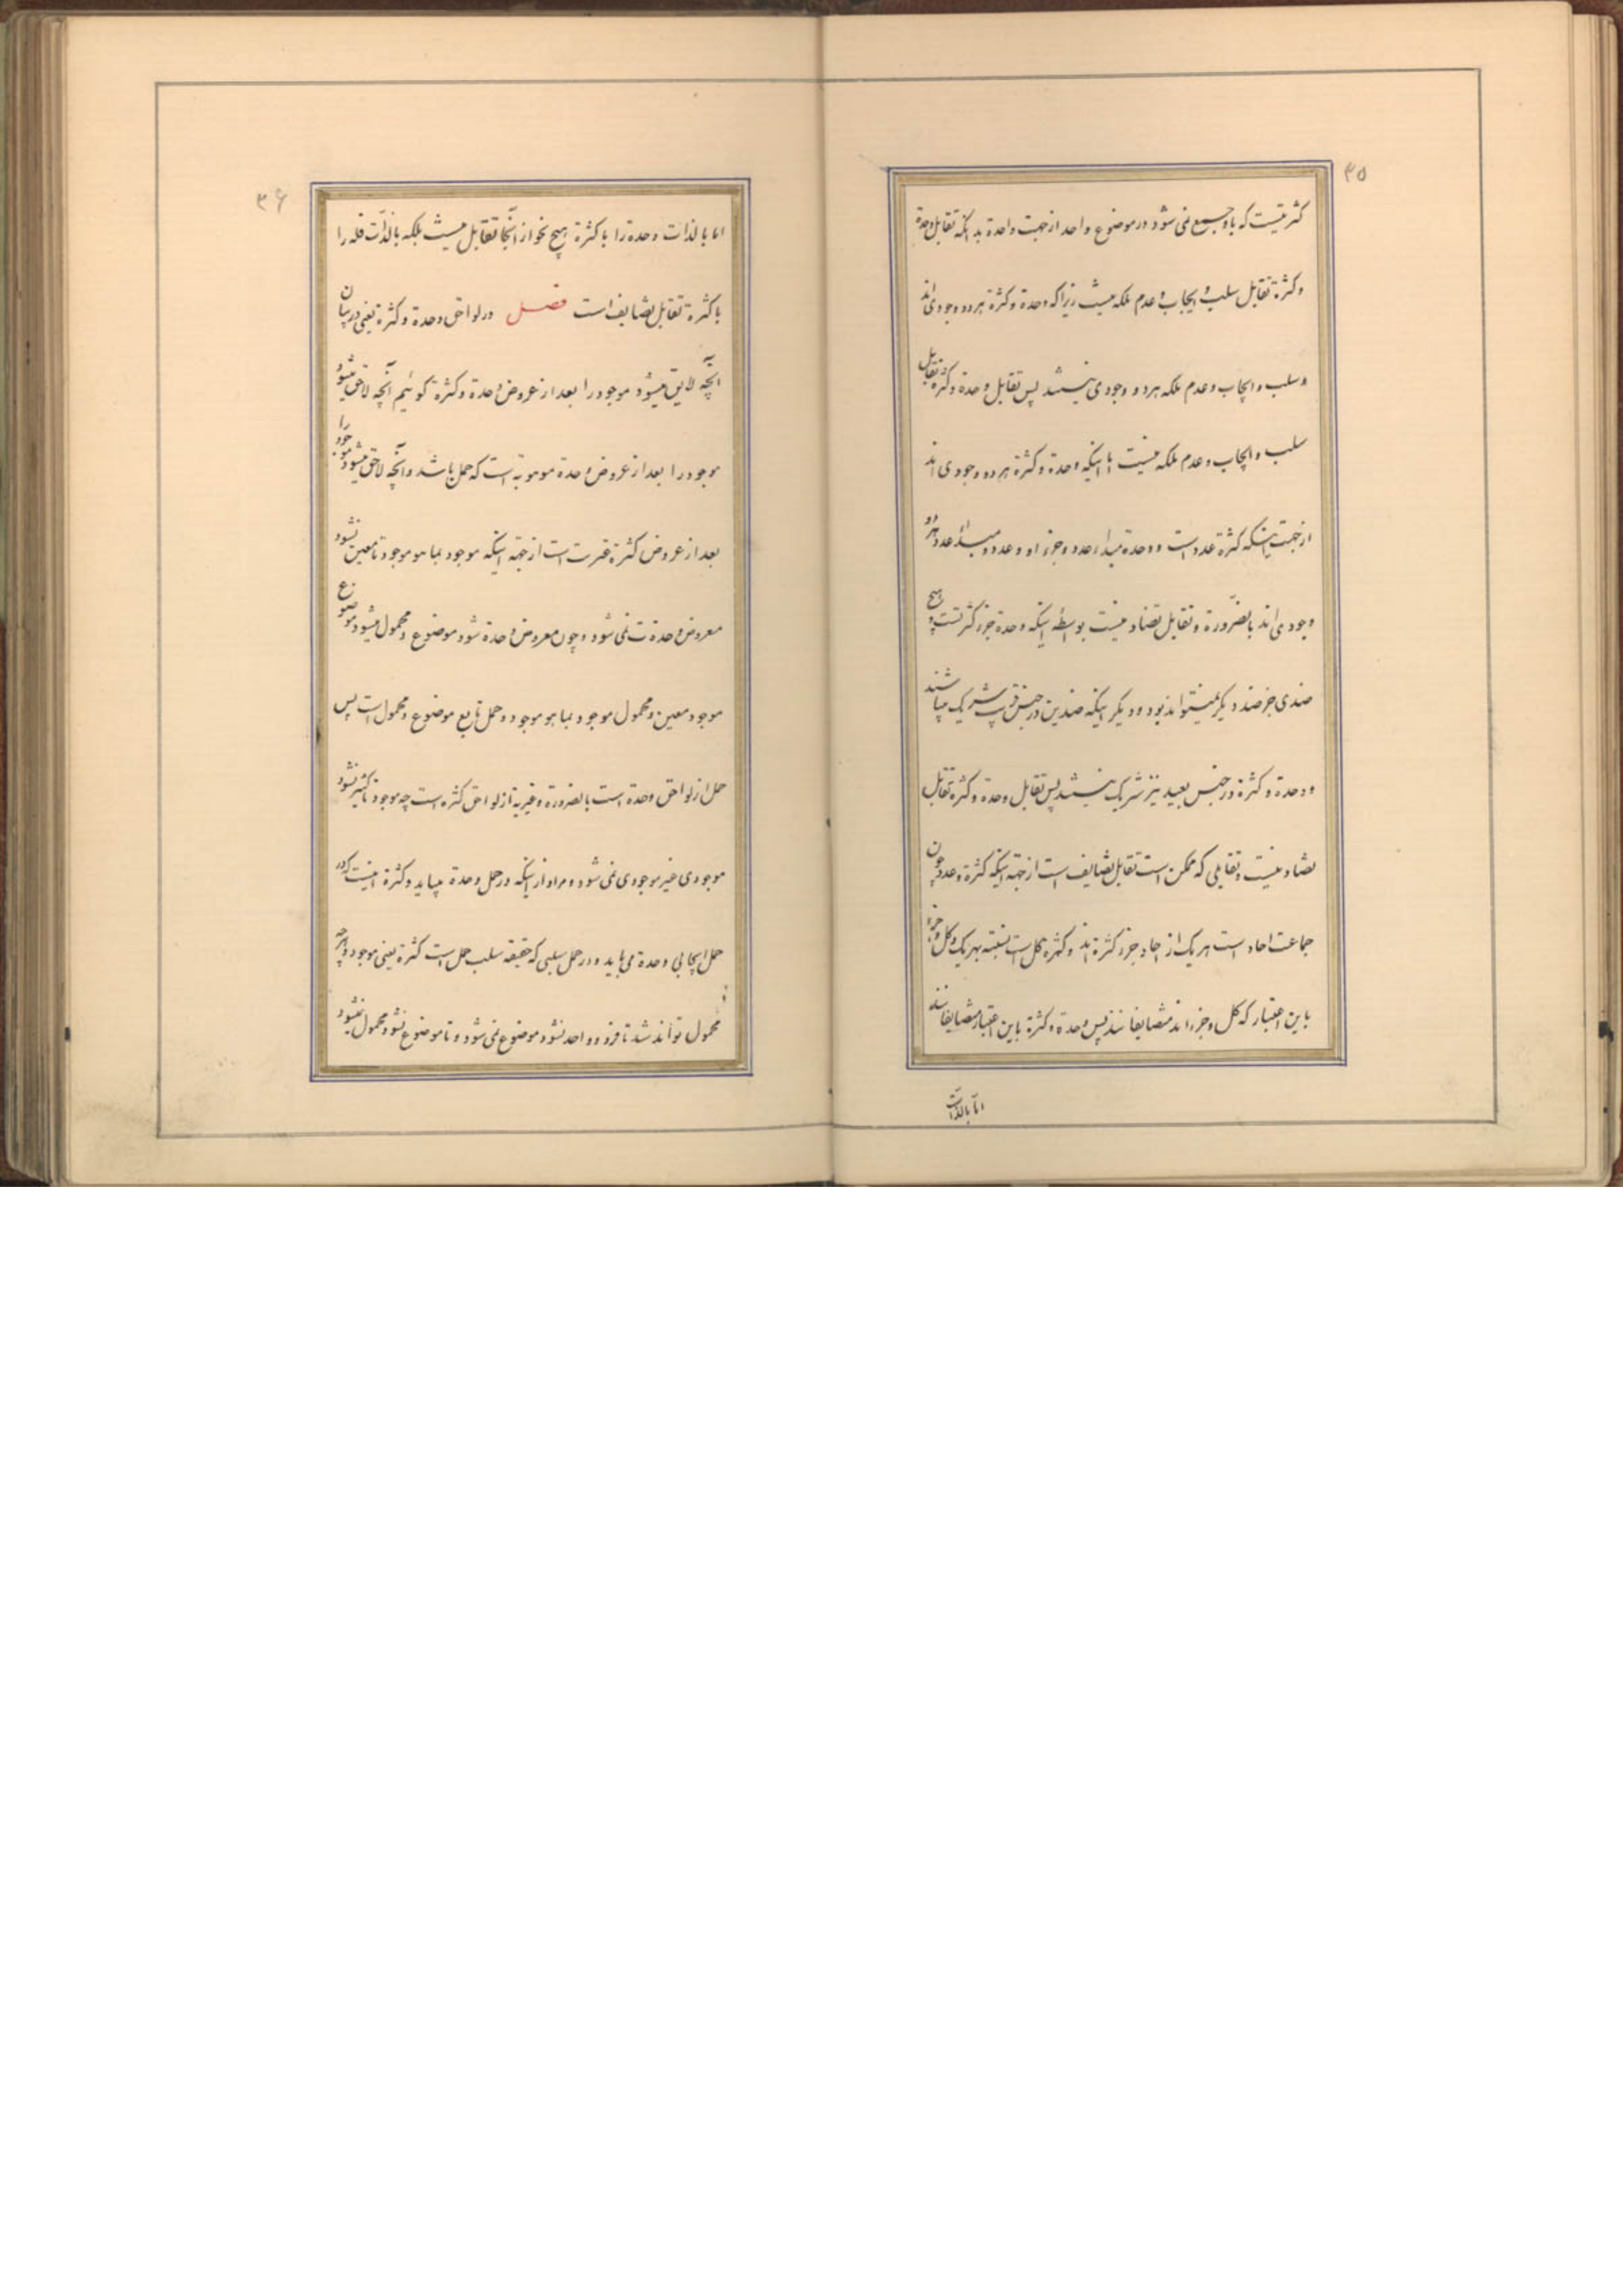 ۳۵
کثرتیست که با او جمیع نمی شود در موضوع واحد از جهت واحدة بدانکه تقابل وحدة
وکثرة تقابل سلب و ایجاب و عدم ملکه نیست زیرا که وحدة وکثرة هر دو وجودی اند
و سلب و ایجاب و عدم ملکه هر دو وجودی نیستند پس تقابل وحدة وکثرة تقابل
سلب و ایجاب و عدم ملکه نیست با اینکه وحدة وکثرة هر دو وجودی اند
از جهت اینکه کثرة عدد است و وحدة مبداء عدد و جزء او و عدد و مبداء عدد هر دو
وجودی اند بالضرورة و تقابل تضاد نیست بواسطه اینکه وحدة جزء کثرتست و هیچ
ضدی جزء ضد دیگر نمیتواند بود و دیگر اینکه ضدین در جنس قریب شریک میباشند
و وحدة و کثرة در جنس بعید نیز شریک نیستند پس تقابل وحدة و کثرة تقابل
تضاد نیست و تقابلی که ممکن است تقابل تضایف است از جهة اینکه کثرة و عدد چون
جماعت احاد است هر یک از احاد جزء کثرة اند و کثرة کل است نسبت بهر یک و کل و جزء
باین اعتبار که کل و جزء اند متضایفا نند پس وحدة و کثرة باین اعتبار متضایفانند
اما بالذات
۳۶
اما بالذات وحدة را با کثرة هیچ نحو از انحا تقابل نیست بلکه بالذات قله را
با کثرة تقابل تضایف است فصل در لواحق وحدة و کثرة یعنی در بیان
آنچه لایق میشود موجود را بعد از عروض وحدة و کثرة گوئیم آنچه لاحق میشود
موجود را بعد از عروض وحدة هوهویة است که حمل باشد و آنچه لاحق میشود موجود را
بعد از عروض کثرة غیریت است از جهة اینکه موجود بما هو موجود تا معین نشود
معروض وحدة نمی شود و چون معروض وحدة شود موضوع و محمول میشود موضوع
موجود معین و محمول موجود بما هو موجود و حمل تابع موضوع و محمول است پس
حمل از لواحق وحدة است بالضرورة و غیریة از لواحق کثرة است چه موجود تا کثیر نشود
موجودی غیر موجودی نمی شود و مراد از اینکه در حمل وحدة میباید و کثرة اینست که در
حمل ایجابی وحدة می باید و در حمل سلبی که حقیقه سلب حمل است کثرة یعنی موجود
محمول تواند شد تا فرد واحد نشود موضوع نمی شود و تا موضوع نشود محمول نمیشود